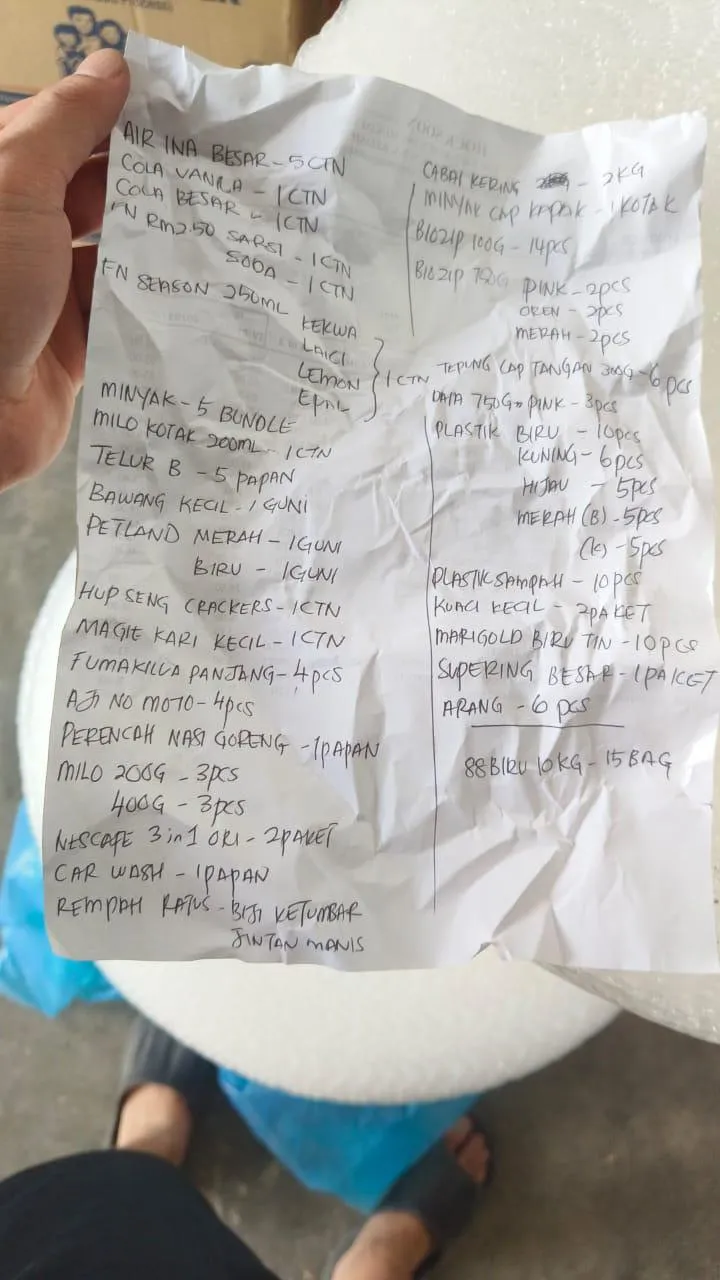 AIR INA BESAR - 5 CTN
COLA VANILA - 1 CTN
COLA BESAR - 1 CTN
FN RM2.50 SARSI - 1 CTN
SODA - 1 CTN
FN SEASON 250ML KEKWA
LAICI
LEMON
EPAL } 1 CTN
MINYAK - 5 BUNDLE
MILO KOTAK 200ML - 1 CTN
TELUR B - 5 PAPAN
BAWANG KECIL - 1 GUNI
PETLAND MERAH - 1 GUNI
BIRU - 1 GUNI
HUP SENG CRACKERS - 1 CTN
MAGIE KARI KECIL - 1 CTN
FUMAKILLA PANJANG - 4 pcs
AJI NO MOTO - 4 pcs
PERENCAH NASI GORENG - 1 PAPAN
MILO 200G - 3 pcs
400G - 3 pcs
NESCAFE 3 in 1 ORI - 2 PAKET
CAR WASH - 1 PAPAN
REMPAH RATUS - BIJI KETUMBAR
JINTAN MANIS
CABAI KERING - 2 KG
MINYAK CAP KAPAK - 1 KOTAK
BIOZIP 100G - 14 pcs
BIOZIP 750G PINK - 2 pcs
OREN - 2 pcs
MERAH - 2 pcs
TEPUNG CAP TANGAN 300G - 6 pcs
DAIA 750G PINK - 3 pcs
PLASTIK BIRU - 10 pcs
KUNING - 6 pcs
HIJAU - 5 pcs
MERAH (B) - 5 pcs
(K) - 5 pcs
PLASTIK SAMPAH - 10 pcs
KUACI KECIL - 2 PAKET
MARIGOLD BIRU TIN - 10 PCS
SUPERING BESAR - 1 PAKET
ARANG - 6 pcs
88 BIRU 10 KG - 15 BAG